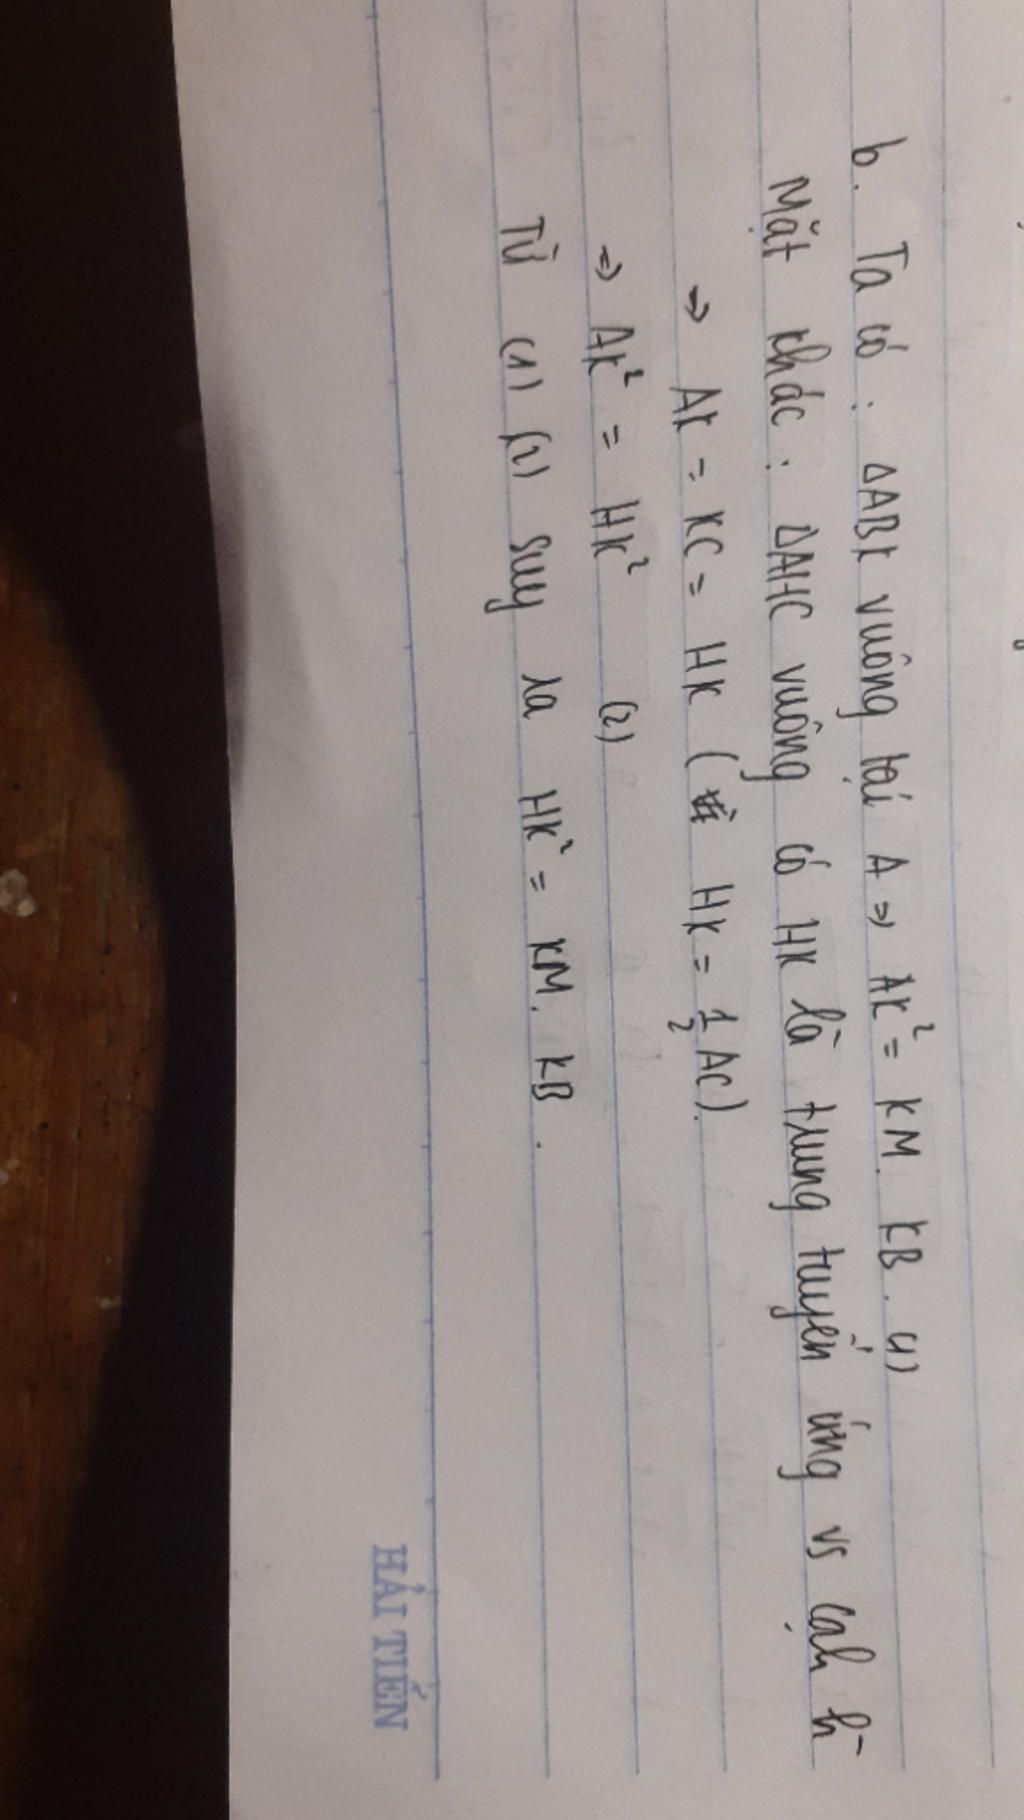 b. Ta có : ΔABK vuông tại A => AK² = KM. KB. (1)
Mặt khác : ΔAHC vuông có HK là trung tuyến ứng vs cạh h
=> AK = KC = HK ( HK = 1/2 AC).
=> AK² = HK² (2)
Từ (1) (2) suy ra HK² = KM. KB .
HẢI TIẾN